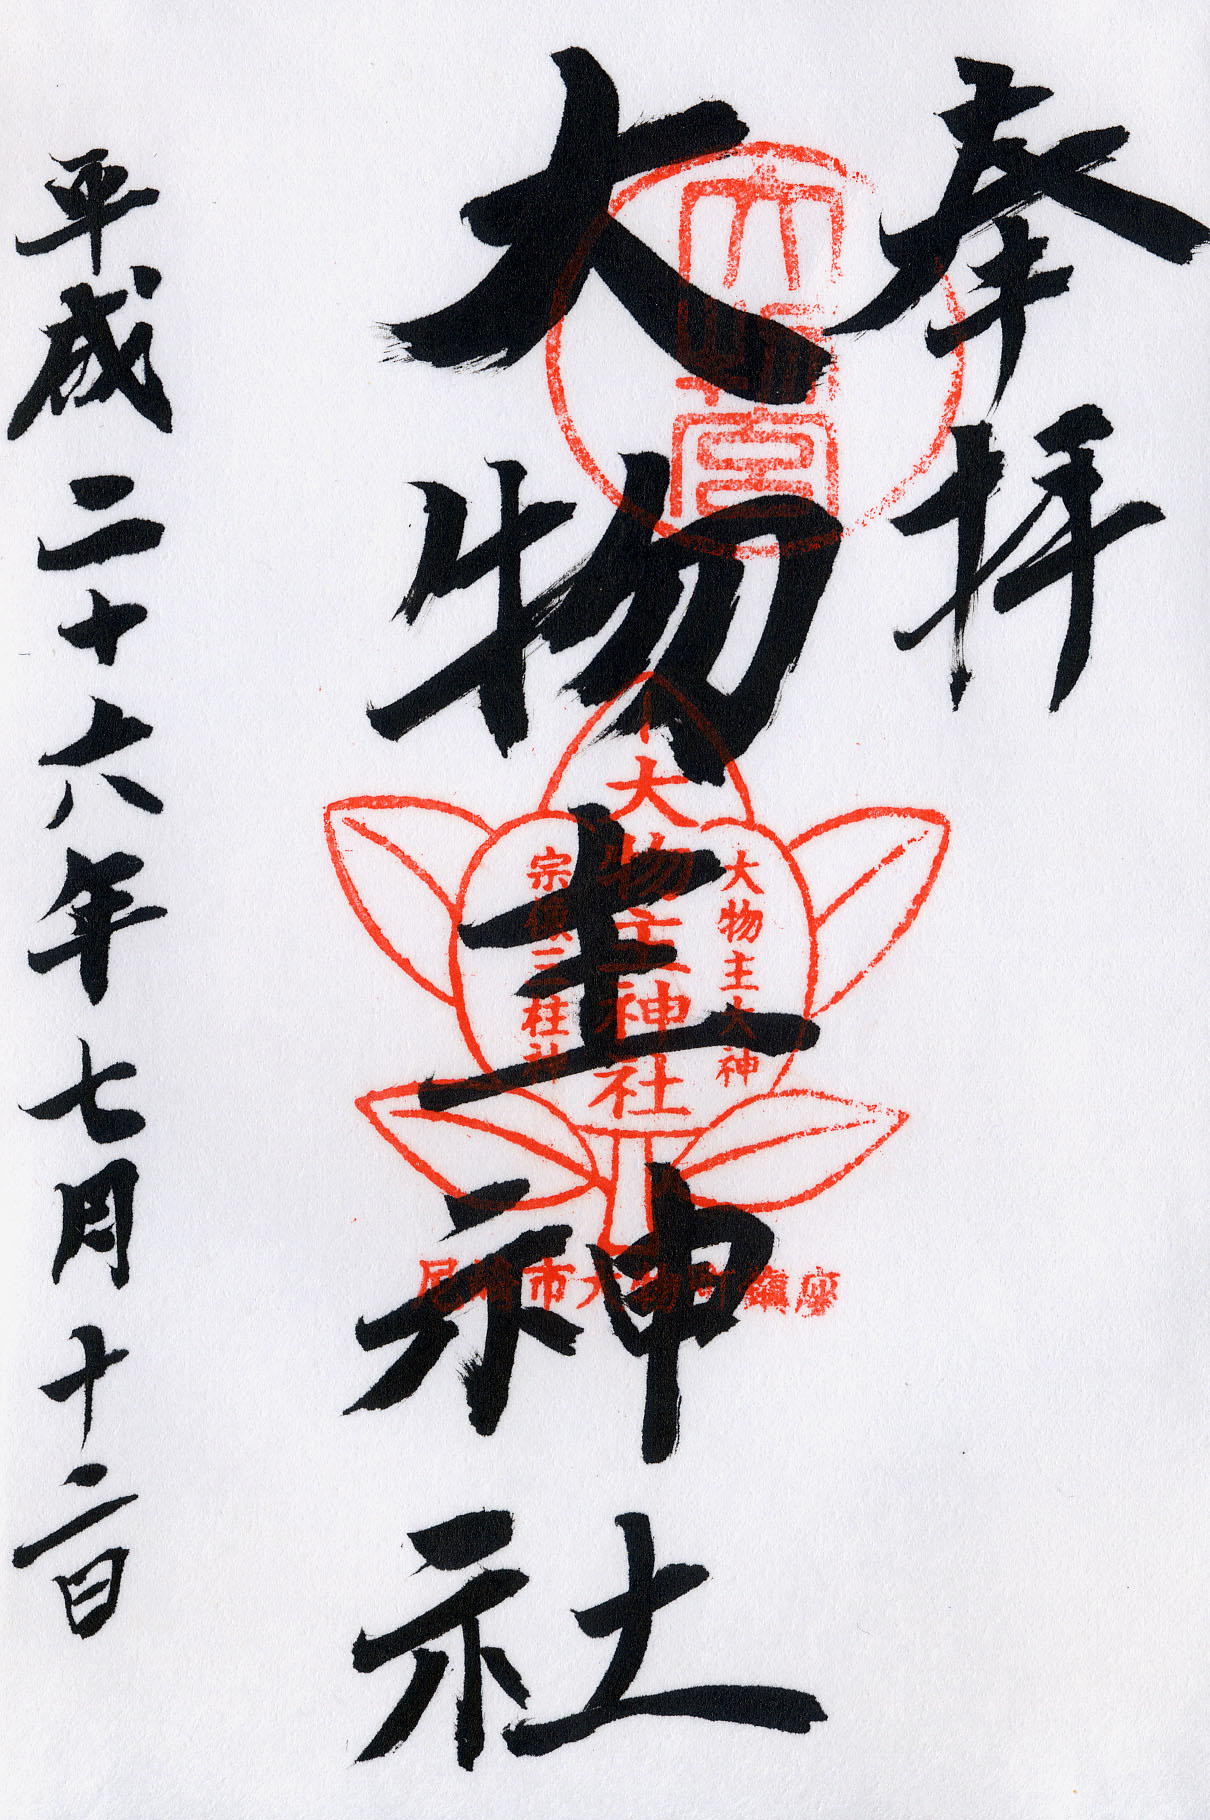 奉拝
大物主神社
大物主大神
大物主神社
宗像三柱神
尼崎市大物町鎮座
平成二十六年七月十二日